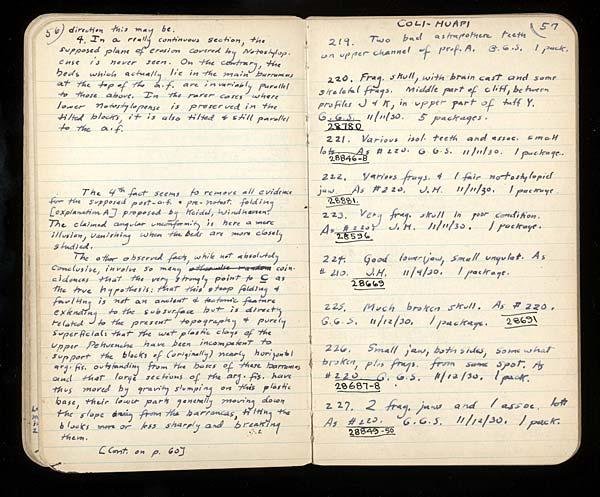 56) direction this may be.
4. In a really continuous section, the
supposed plane of erosion covered by Notostylop-
ense is never seen. On the contrary, the
beds which actually lie in the main barrancas
at the top of the a.f. are invariably parallel
to those above. In the rarer cases where
lower Notostylopense is preserved in the
tilted blocks, it is also tilted & still parallel
to the a.f.
The 4th fact seems to remove all evidence
for the supposed post-a.f. & pre-Notost. folding
[explanation A] proposed by Keidel, Windhausen.
The claimed angular unconformity is here a mere
illusion, vanishing when the beds are more closely
studied.
The other observed facts, while not absolutely
conclusive, involve so many coin-
cidences that they strongly point to C as
the true hypothesis: that this steep folding &
faulting is not an ancient & tectonic feature
extending to the subsurface but is directly
related to the present topography & purely
superficial: that the wet plastic clays of the
upper Pehuenche have been incompetent to
support the blocks of (originally) nearly horizontal
arg. fis. outstanding from the bases of these barrancas
and that large sections of the arg. fis. have
thus moved by gravity slumping on this plastic
base, their lower part generally moving down
the slope from the barrancas, tilting the
blocks more or less sharply and breaking
them.
[Cont. on p. 60]
COLI-HUAPI
57
219. Two bad astrapothere teeth
on upper channel of prof. A. G.G.S. 1 pack.
220. Frag. skull, with brain cast and some
skeletal frags. Middle part of cliff, between
profiles J & K, in upper part of tuff Y.
G.G.S. 11/11/30. 5 packages.
28780
221. Various isol. teeth and assoc. small
lots. As #220. G.G.S. 11/11/30. 1 package.
28846-8
222. Various frags. & 1 fair notostylopid
jaw. As #220. J.H. 11/11/30. 1 package.
28881
223. Very frag. skull in poor condition.
As #220. J.H. 11/11/30. 1 package.
28596
224. Good lower jaw, small ungulat. As
#210. J.H. 11/9/30. 1 package.
28669
225. Much broken skull. As #220.
G.G.S. 11/12/30. 1 package. 28691
226. Small jaw, both sides, somewhat
broken, plus frags. from same spot. As
#220. G.G.S. 11/12/30. 1 pack.
28687-8
227. 2 frag. jaws and 1 assoc. lot
As #220. G.G.S. 11/12/30. 1 pack.
28849-50